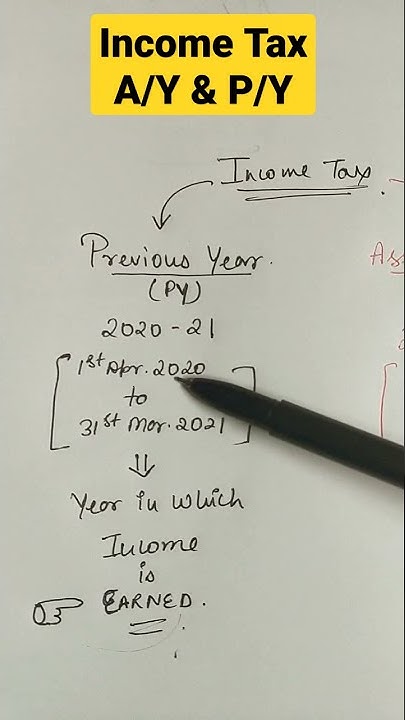 Income Tax
A/Y & P/Y
Income Tax.
Previous Year.
(PY)
2020-21
1st Apr. 2020
to
31st Mar. 2021
Year in which
Income
is
EARNED.